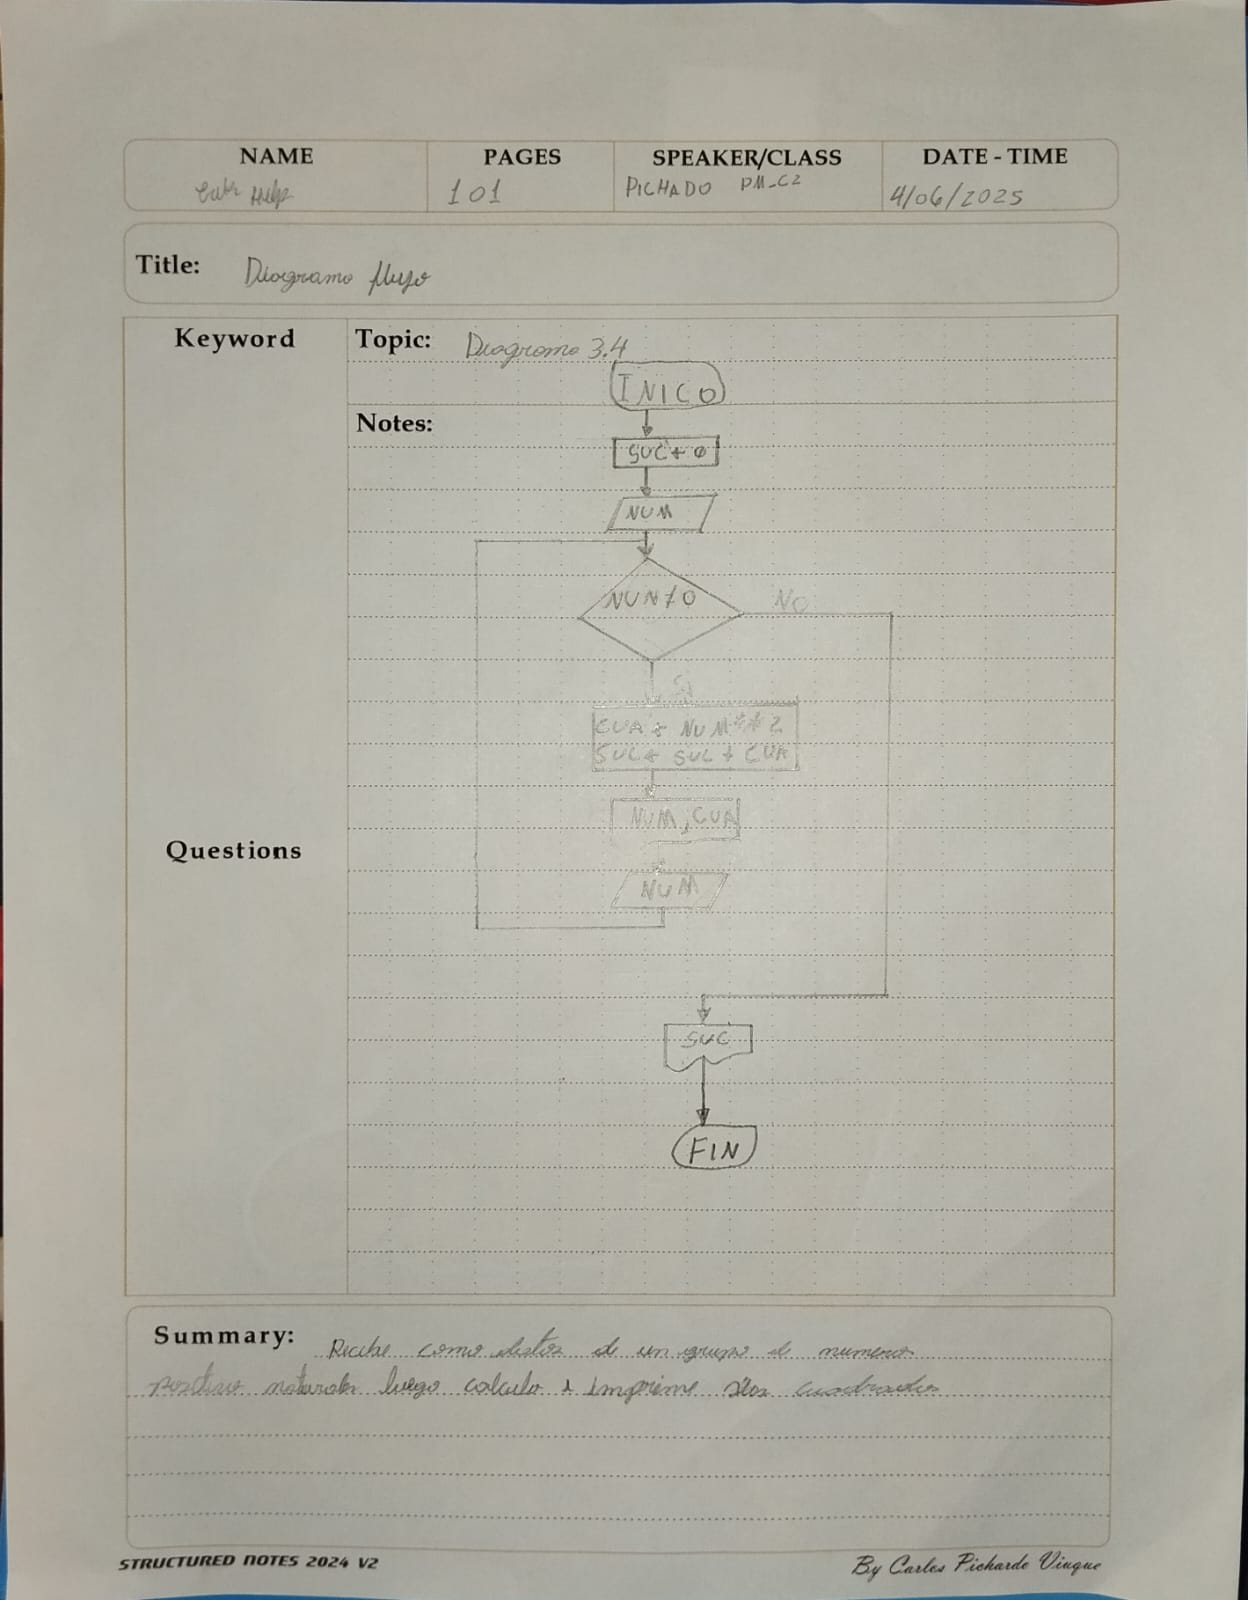 NAME PAGES SPEAKER/CLASS DATE - TIME
101 PICHADO PM-C2 4/06/2025
Title: Diagrama flujo
Keyword
Topic: Diagrama 3.4
INICO
Notes:
SUC← 0
NUM
NUN≠0 No
Si
CUA← NUM**2
SUC← SUC + CUA
NUM, CUA
Questions
NUM
SUC
FIN
Summary: Recibe como datos de un grupo de numeros
naturales luego calcula e imprime cuadrados
STRUCTURED NOTES 2024 V2 By Carlos Pichardo Viuque